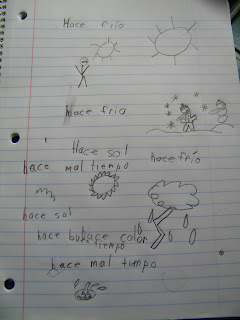 Hace frío
hace frío
Hace sol
hace mal tiempo
hace frío
hace sol
hace buen tiempo
hace calor
hace mal tiempo